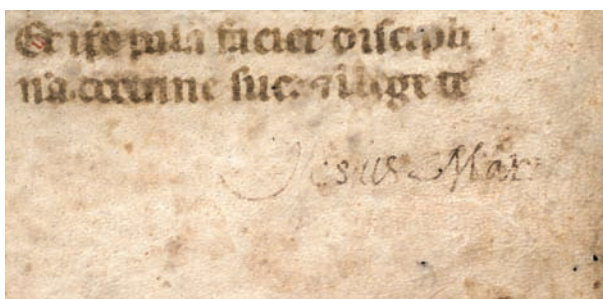 Et ipse palā faciet discipli
nā doctrine sue: ⁊ ī lege te
Jesus Mar